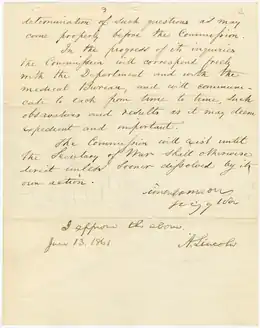 3
determination of such questions as may
come properly before the Commission.
In the progress of its inquiries
the Commission will correspond freely
with the Department and with the
medical Bureau, and will communi-
cate to each from time to time, such
observations and results as it may deem
expedient and important.
The Commission will exist until
the Secretary of War shall otherwise
direct unless sooner dissolved by its
own action.
Simon Cameron
Secy of War
I approve the above.
June 13, 1861
A. Lincoln